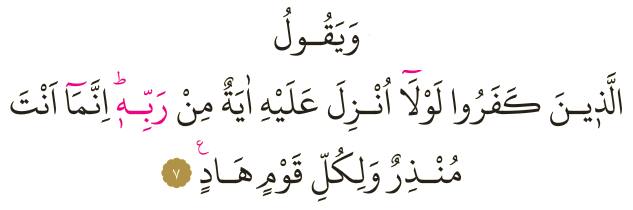 وَيَقُولُ
الَّذٖينَ كَفَرُوا لَوْلَٓا اُنْزِلَ عَلَيْهِ اٰيَةٌ مِنْ رَبِّهٖؕ اِنَّمَٓا اَنْتَ
مُنْذِرٌ وَلِكُلِّ قَوْمٍ هَادٍࣖ ٧